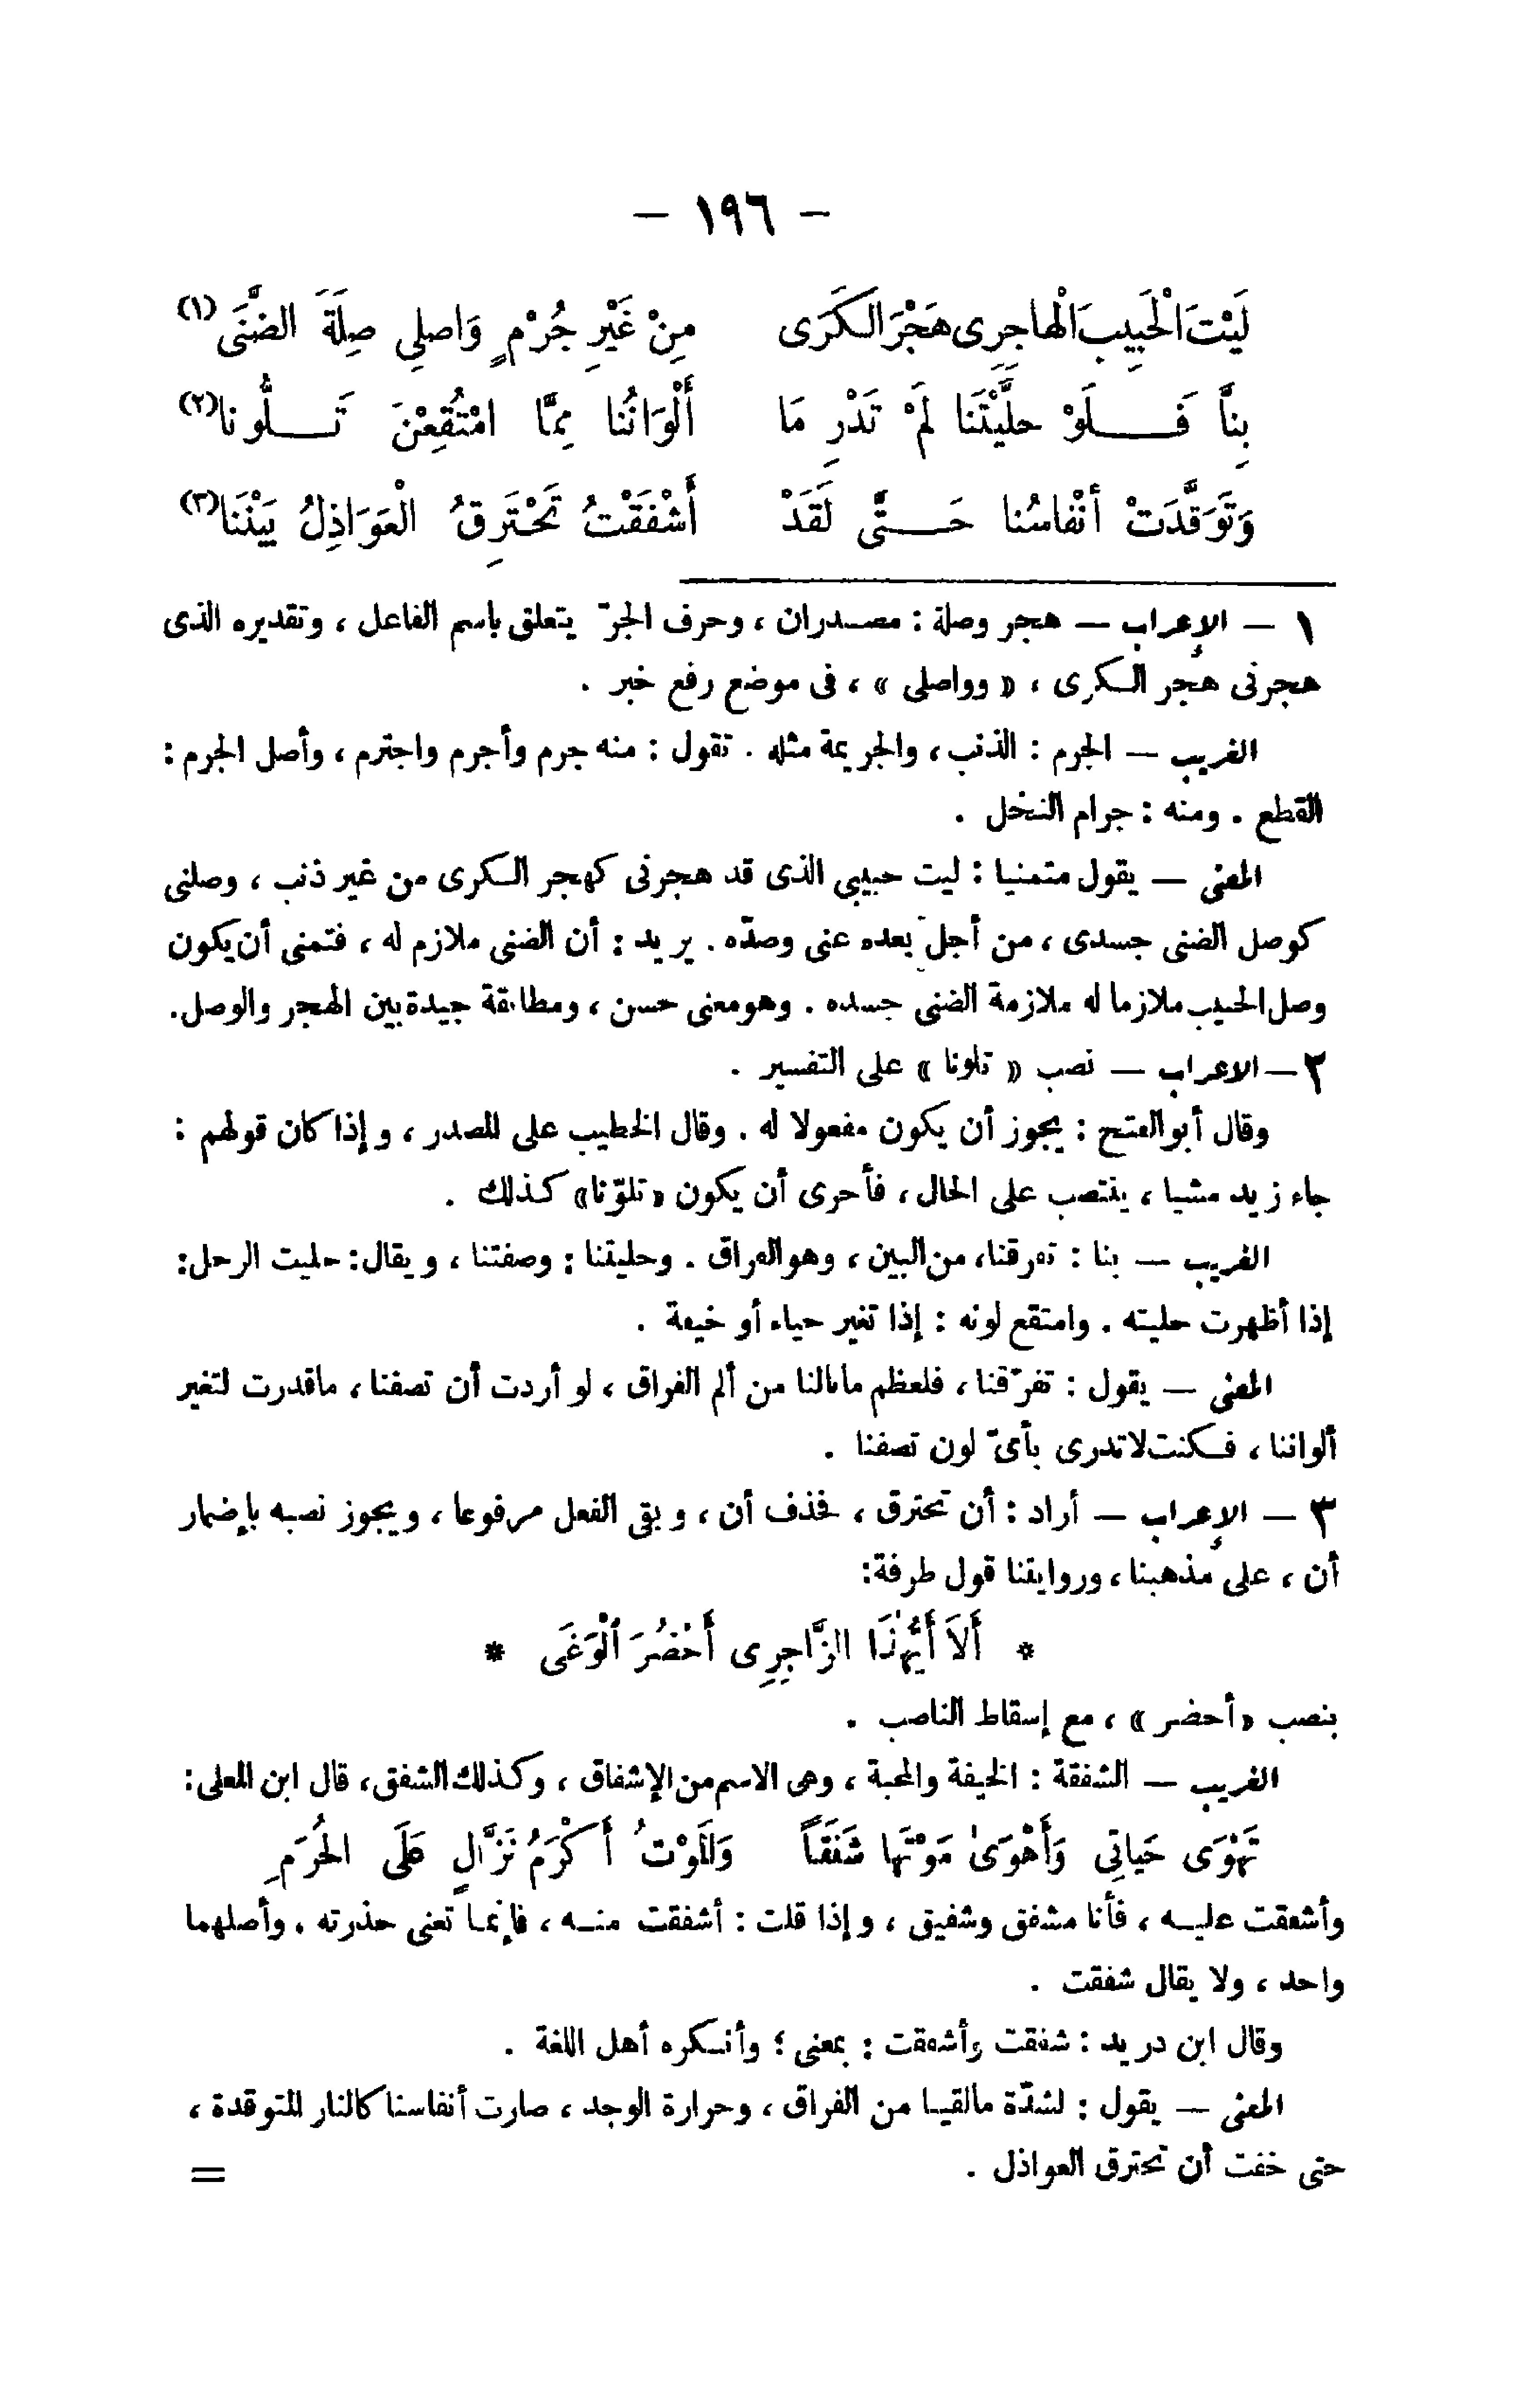 - ١٩٦ -
لَيْتَ الْحَبِيبَ الْهاجِرِى هَجْرَ الْكَرَى مِنْ غَيْرِ جُرْمٍ وَاصلِى صِلَةَ الضَّنَى (١)
بِنَّا فَلَوْ حلَّيْتَنا لَمْ تَدْرِ مَا أَلْوَانُنا مِمَّا امْتُقِعْنَ تَلَوُّنا (٢)
وَتَوَقَّدَتْ أنْفاسُنا حَتَّى لَقَدْ أَشْفَقْتُ تَحْتَرِقُ الْعَوَاذِلُ بَيْنَنا (٣)
١ — الإعراب — هجر وصلة : مصدران ، وحرف الجرّ يتعلق باسم الفاعل ، وتقديره الذى
هجرنى هجر الكرى ، « وواصلى » ، فى موضع رفع خبر .
الغريب — الجرم : الذنب ، والجريمة مثله . تقول : منه جرم وأجرم واجترم ، وأصل الجرم :
القطع . ومنه : جرام النخل .
المعنى — يقول متمنيا : ليت حبيبي الذى قد هجرنى كهجر الكرى من غير ذنب ، وصلنى
كوصل الضنى جسدى ، من أجل بعده عنى وصدّه . يريد : أن الضنى ملازم له ، فتمنى أن يكون
وصل الحبيب ملازما له ملازمة الضنى جسده . وهو معنى حسن ، ومطابقة جيدة بين الهجر والوصل .
٢ — الاعراب — نصب « تلونا » على التفسير .
وقال أبو الفتح : يجوز أن يكون مفعولا له . وقال الخطيب على المصدر ، وإذا كان قولهم :
جاء زيد مشيا ، ينتصب على الحال ، فأحرى أن يكون « تلوّنا » كذلك .
الغريب — بنا : تفرقنا ، من البين ، وهو الفراق . وحليتنا : وصفتنا ، ويقال : حليت الرجل :
إذا أظهرت حليته . وامتقع لونه : إذا تغير حياء أو خيفة .
المعنى — يقول : تفرّقنا ، فلعظم ما نالنا من ألم الفراق ، لو أردت أن تصفنا ، ماقدرت لتغير
ألواننا ، فكنت لاتدرى بأىّ لون تصفنا .
٣ — الإعراب — أراد : أن تحترق ، فحذف أن ، وبقى الفعل مرفوعا ، ويجوز نصبه بإضمار
أن ، على مذهبنا ، وروايتنا قول طرفة :
* أَلاَ أَيُّهٰذَا الزَّاجِرِى أَحْضُرَ الْوَغَى *
بنصب « أحضر » ، مع إسقاط الناصب .
الغريب — الشفقة : الخيفة والمحبة ، وهى الاسم من الإشفاق ، وكذلك الشفق ، قال ابن المعلى :
تَهْوَى حَياتِى وَأَهْوَىٰ مَوْتَها شَفَقاً وَالمَوْتُ أَكْرَمُ نَزَّالٍ عَلَى الحُرَمِ
وأشفقت عليه ، فأنا مشفق وشفيق ، وإذا قلت : أشفقت منه ، فإنما تعنى حذرته . وأصلهما
واحد ، ولا يقال شفقت .
وقال ابن دريد : شفقت وأشفقت : بمعنى ؛ وأنكره أهل اللغة .
المعنى — يقول : لشدّة مالقينا من الفراق ، وحرارة الوجد ، صارت أنفاسنا كالنار المتوقدة ،
حتى خفت أن تحترق العواذل .
=